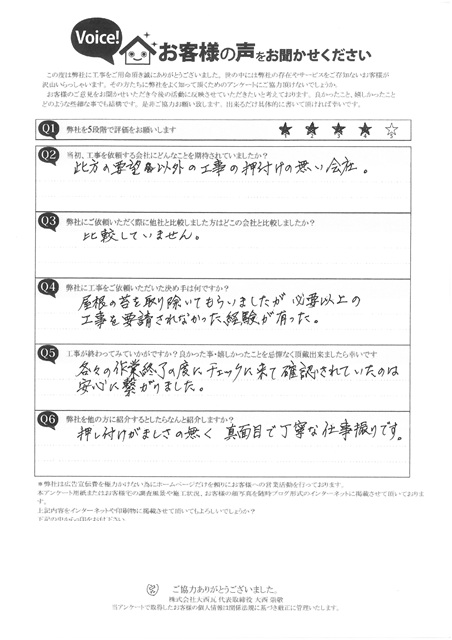 Voice!
お客様の声をお聞かせください
この度は弊社に工事をご用命頂き誠にありがとうございました。世の中には弊社の存在やサービスをご存知ないお客様が
沢山いらっしゃいます。その方たちに弊社をよく知って頂くためのアンケートにご協力頂けないでしょうか。
お客様のご意見をお聞かせいただき今後の活動に反映させていただきたいと考えております。良かったこと、嬉しかったこと
どのような些細な事でも結構です。是非ご協力お願い致します。出来るだけ具体的に書いて頂ければ幸いです。
Q1 弊社を5段階で評価をお願いします ★ ★ ★ ★ ☆
1 2 3 4 5
Q2 当初、工事を依頼する会社にどんなことを期待されていましたか?
此方の要望以外の工事の押付けの無い会社。
Q3 弊社にご依頼いただく際に他社と比較しました方はどこの会社と比較しましたか?
比較していません。
Q4 弊社に工事をご依頼いただいた決め手は何ですか?
屋根の苔を取り除いてもらいましたが 必要以上の
工事を要請されなかった経験が有った。
Q5 工事が終わってみていかがですか?良かった事・嬉しかったことを忌憚なく頂戴出来ましたら幸いです
各々の作業終了の度にチェックに来て確認されていたのは
安心に繋がりました。
Q6 弊社を他の方に紹介するとしたらなんと紹介しますか?
押し付けがましさの無く 真面目で丁寧な仕事振りです。
*弊社は広告宣伝費を極力かけない為にホームページだけを頼りにお客様への営業活動を行っております。
本アンケート用紙またはお客様宅の調査風景や施工状況、お客様の顔写真を随時ブログ形式のインターネットに掲載させて頂いております
上記内容をインターネットや印刷物に掲載させて頂いてもよろしいでしょうか?
ご協力ありがとうございました。
株式会社大西瓦 代表取締役 大西 崇敬
当アンケートで取得したお客様の個人情報は関係法規に基づき厳正に管理いたします。